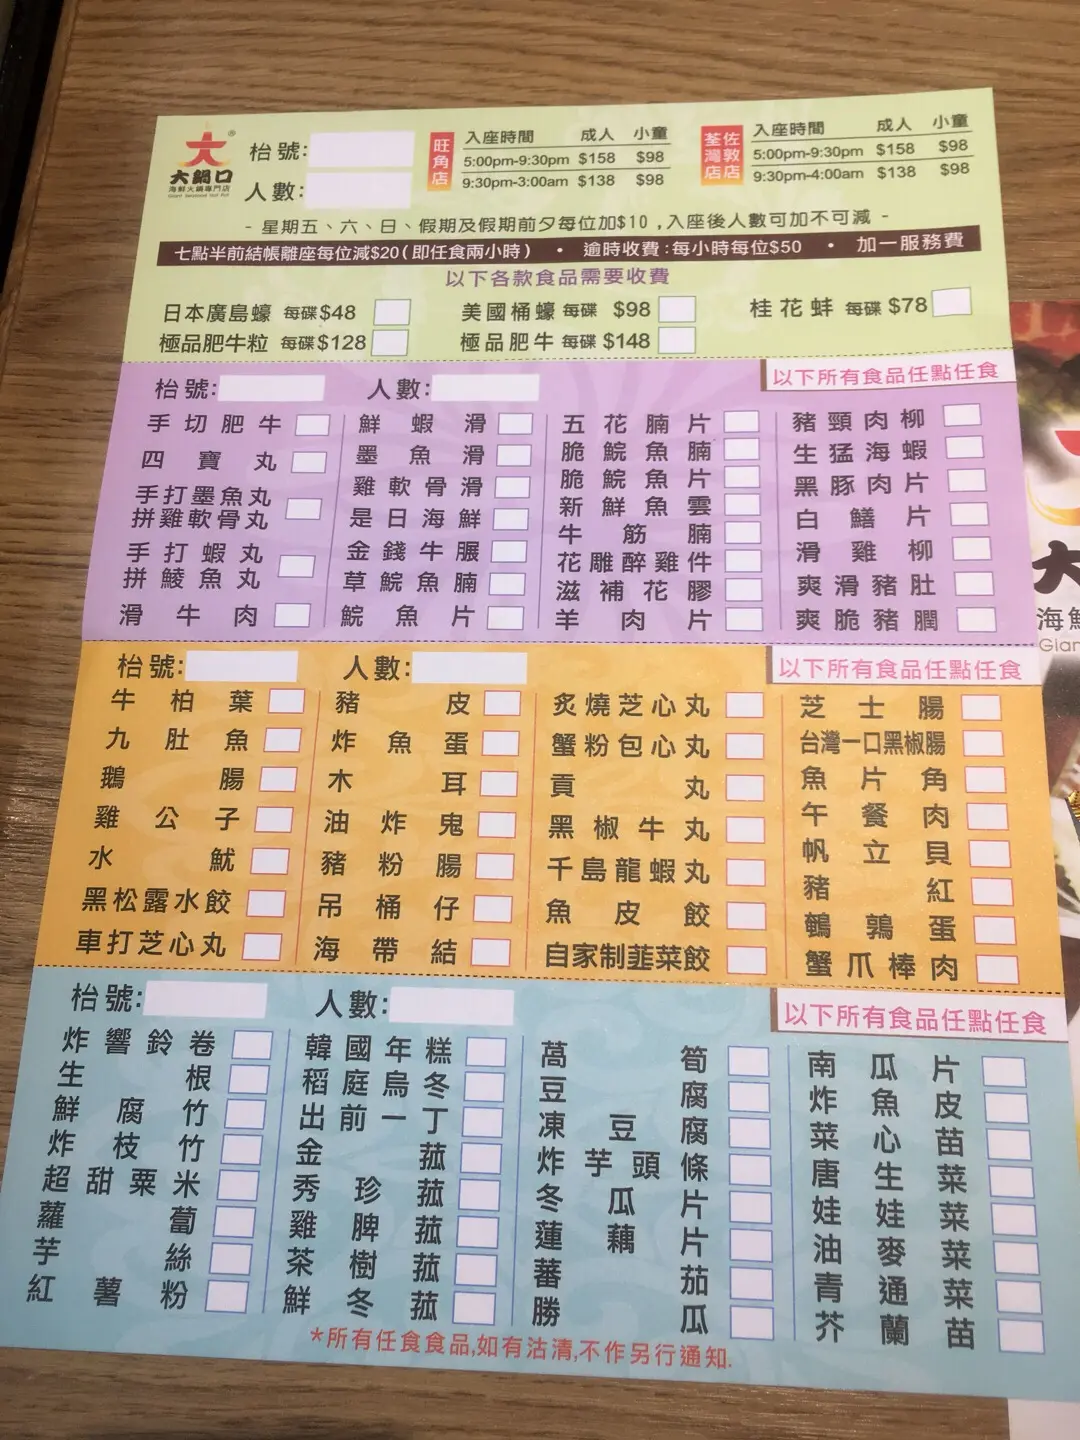 大鍋口®
海鮮火鍋專門店
Giant Seafood Hot Pot
枱號:
人數:
旺角店
入座時間 成人 小童
5:00pm-9:30pm $158 $98
9:30pm-3:00am $138 $98
佐敦店
荃灣店
入座時間 成人 小童
5:00pm-9:30pm $158 $98
9:30pm-4:00am $138 $98
- 星期五、六、日、假期及假期前夕每位加$10 ,入座後人數可加不可減 -
七點半前結帳離座每位減$20(即任食兩小時) • 逾時收費:每小時每位$50 • 加一服務費
以下各款食品需要收費
日本廣島蠔 每碟$48 美國桶蠔 每碟 $98 桂花蚌 每碟 $78
極品肥牛粒 每碟$128 極品肥牛 每碟 $148
枱號: 人數: 以下所有食品任點任食
手切肥牛
四寶丸
手打墨魚丸
拼雞軟骨丸
手打蝦丸
拼鯪魚丸
滑牛肉
鮮蝦滑
墨魚滑
雞軟骨滑
是日海鮮
金錢牛𦟌
草鯇魚腩
鯇魚片
五花腩片
脆鯇魚腩
脆鯇魚片
新鮮魚雲
牛筋腩
花雕醉雞件
滋補花膠
羊肉片
豬頸肉柳
生猛海蝦
黑豚肉片
白鱔片
滑雞柳
爽滑豬肚
爽脆豬膶
枱號: 人數: 以下所有食品任點任食
牛柏葉
九肚魚
鵝腸
雞公子
水魷
黑松露水餃
車打芝心丸
豬皮
炸魚蛋
木耳
油炸鬼
豬粉腸
吊桶仔
海帶結
炙燒芝心丸
蟹粉包心丸
貢丸
黑椒牛丸
千島龍蝦丸
魚皮餃
自家制韮菜餃
芝士腸
台灣一口黑椒腸
魚片角
午餐肉
帆立貝
豬紅
鵪鶉蛋
蟹爪棒肉
枱號: 人數: 以下所有食品任點任食
炸響鈴卷
生根
鮮腐竹
炸枝竹
超甜粟米
蘿蔔
芋絲
紅薯粉
韓國年糕
稻庭烏冬
出前一丁
金菰
秀珍菰
雞髀菰
茶樹菰
鮮冬菰
萵筍
豆腐
凍豆腐
炸芋頭條
冬瓜片
蓮藕片
蕃茄
勝瓜
南瓜片
炸魚皮
菜心苗
唐生菜
娃娃菜
油麥菜
青通菜
芥蘭苗
*所有任食食品,如有沽清,不作另行通知.
大
海鮮
Gian